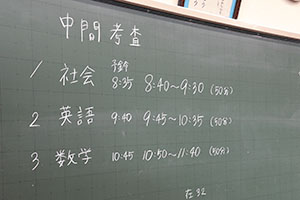 中間考査
予鈴
1 社会 8:35 8:40~9:30 (50分)
2 英語 9:40 9:45~10:35 (50分)
3 数学 10:45 10:50~11:40 (50分)
在32